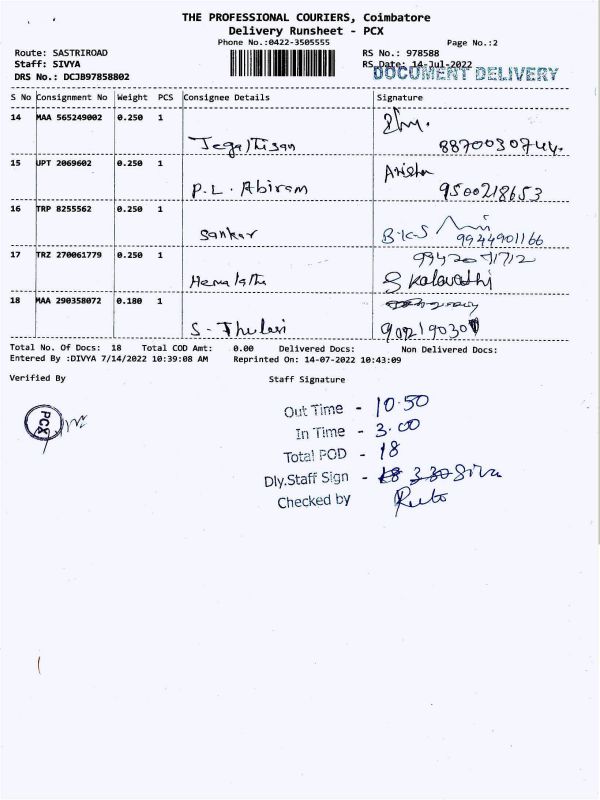 THE PROFESSIONAL COURIERS, Coimbatore
Delivery Runsheet - PCX
Phone No.:0422-3505555 Page No.:2
Route: SASTRIROAD RS No.: 978588
Staff: SIVYA RS Date: 14-Jul-2022
DOCUMENT DELIVERY
DRS No.: DCJB97858802
S No Consignment No Weight PCS Consignee Details Signature
14 MAA 565249002 0.250 1
8870030744.
15 UPT 2069602 0.250 1
P.L. Abiram 9500218653
16 TRP 8255562 0.250 1
Sankar B.K.S 9944901166
17 TRZ 270061779 0.250 1
Hemalatha S Kalavathi
18 MAA 290358072 0.180 1
S-Thulasi
Total No. Of Docs: 18 Total COD Amt: 0.00 Delivered Docs: Non Delivered Docs:
Entered By :DIVYA 7/14/2022 10:39:08 AM Reprinted On: 14-07-2022 10:43:09
Verified By Staff Signature
PCX
Out Time - 10.50
In Time - 3.00
Total POD - 18
Dly.Staff Sign - 18 3.30 Siva
Checked by